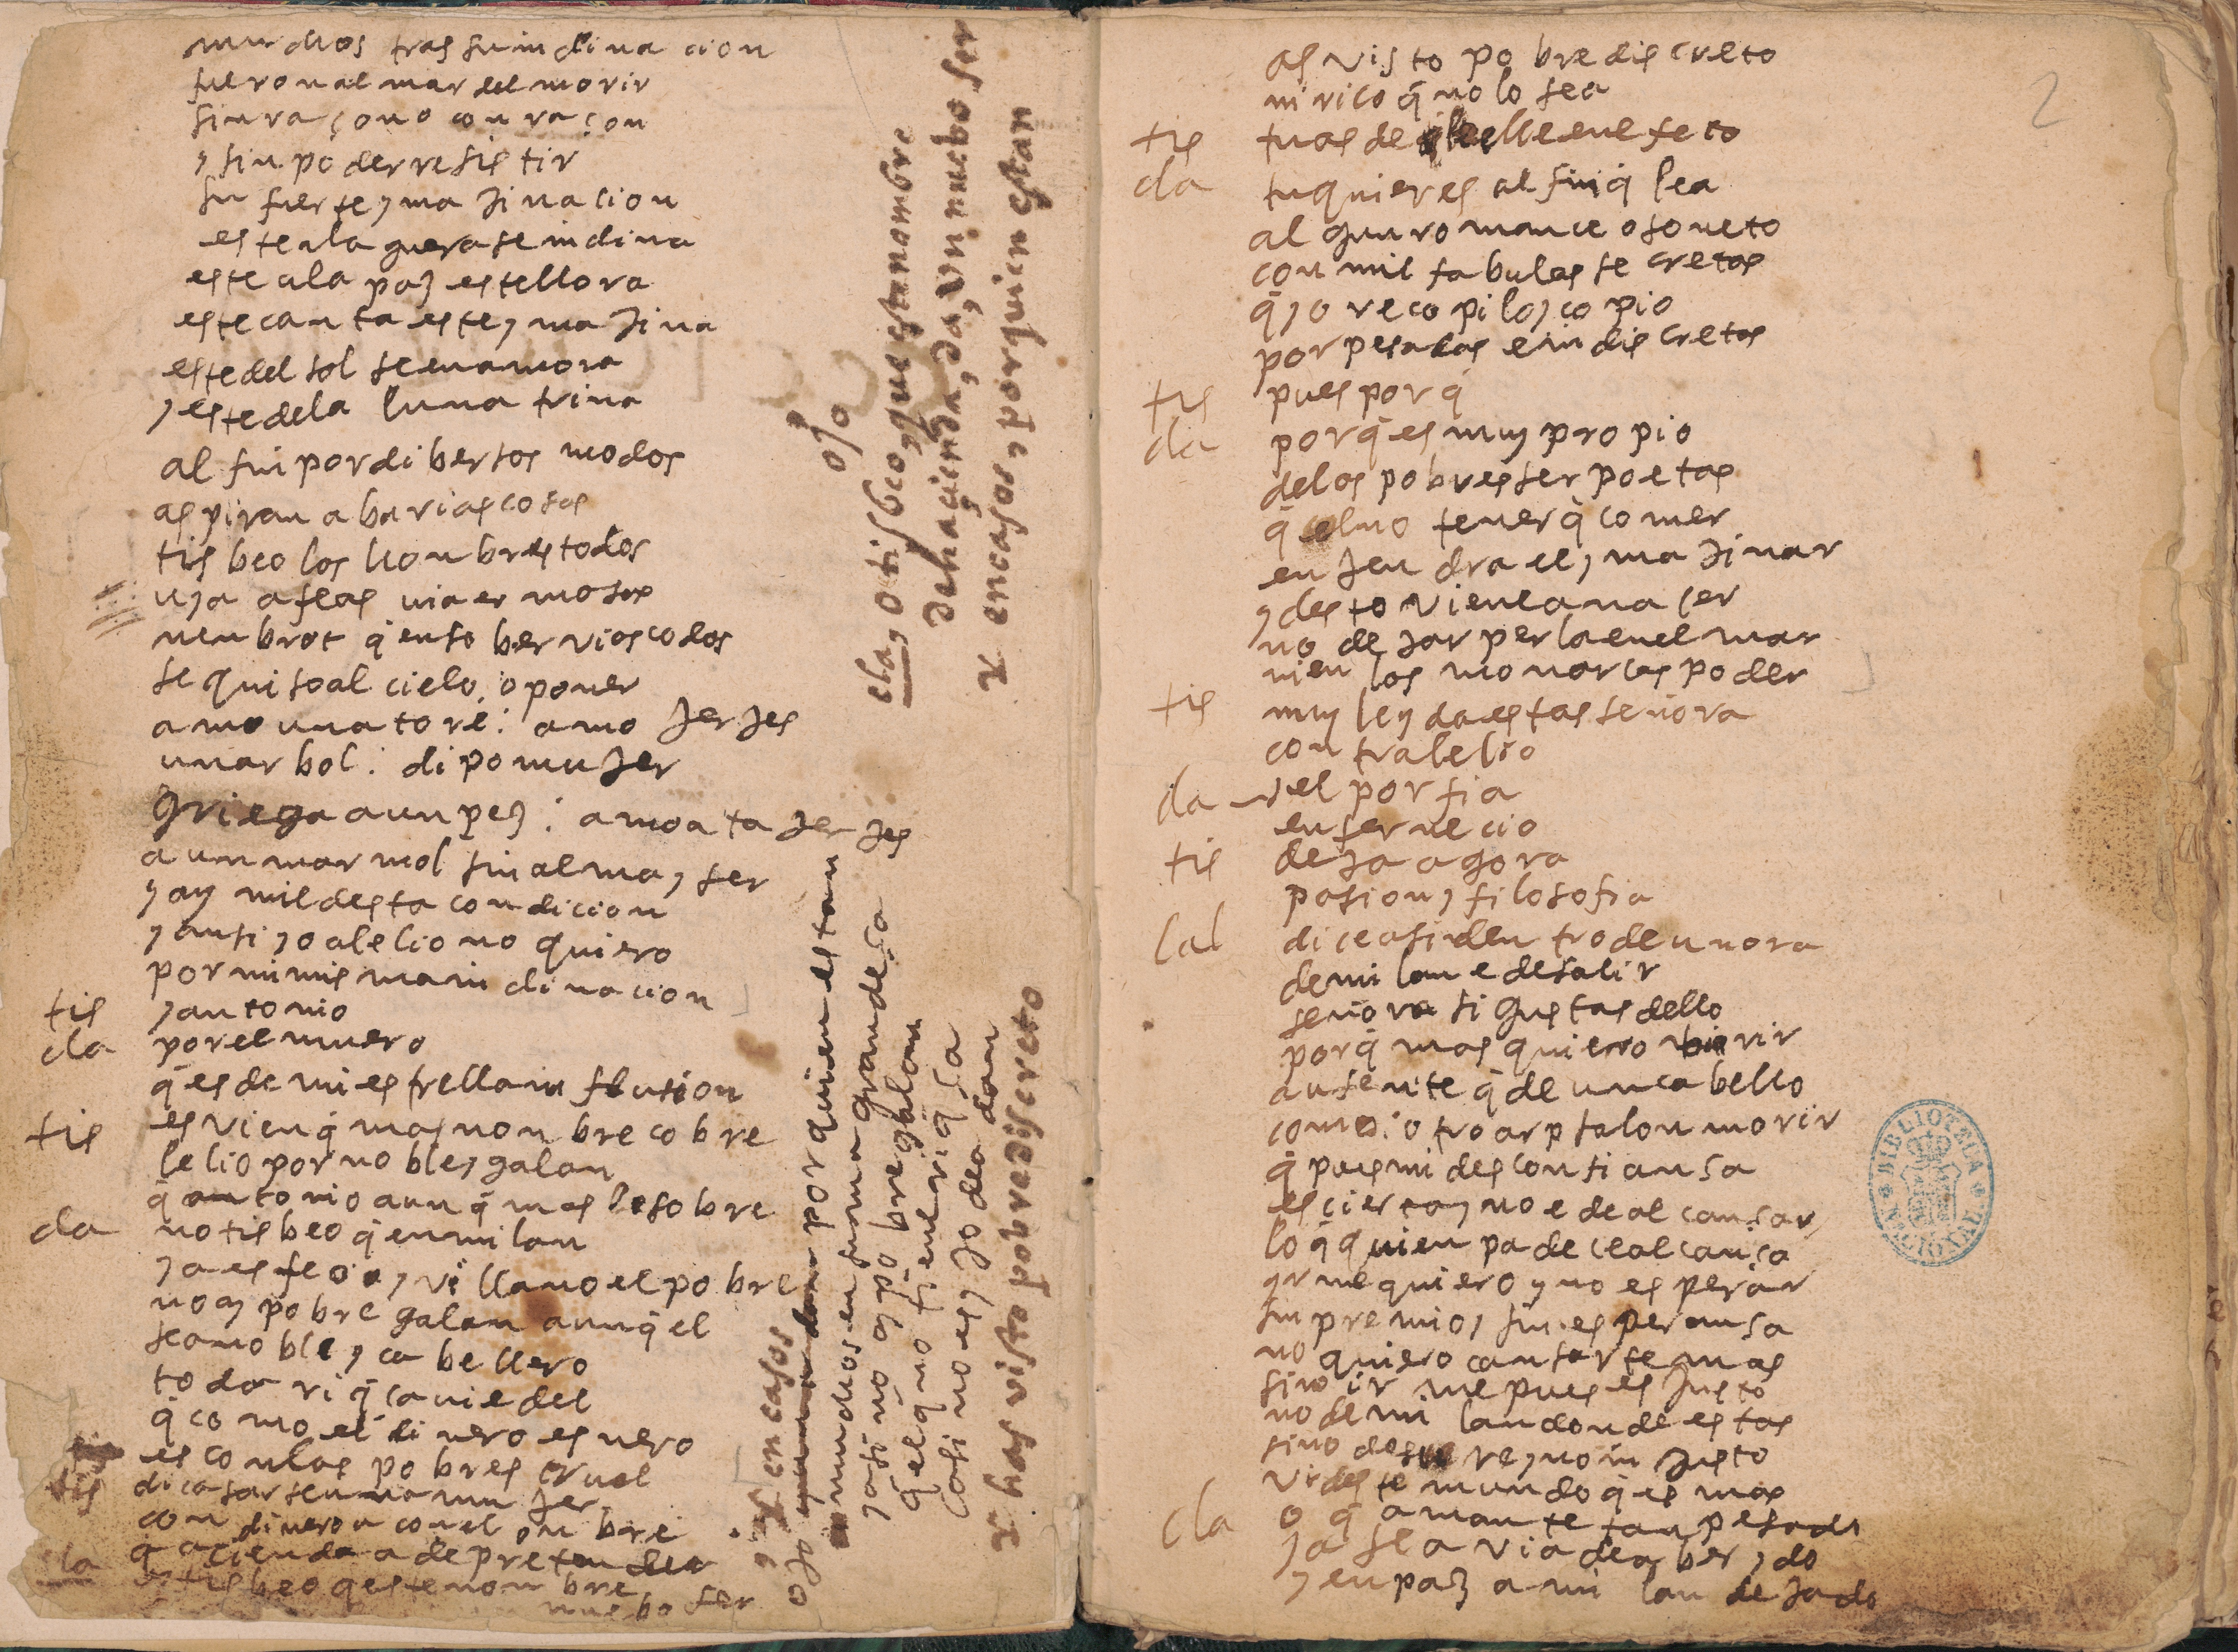 muchos tras su inclinacion
fueron al mar del morir
sin raçon o con raçon
y sin poder resistir
su fuerte ymaJinacion
este a la guera se inclina
este a la paz este llora
este canta este ymaJina
este del sol se enamora
y este de la luna trina
al fin por dibersos modos
aspiran a barias cosas
tisbeo los honbres todos
ya a feas ia ermosas
nenbrot q̄ en soberviosos codos
se quiso al cielo oponer
amo una tore: amo JerJes
un arbol: dipo muJer
griega a un pez: amo ataJerJes
a un marmol sin alma y ser
y ay mil desta condicion
y ansi yo a lelio no quiero
por mi misma inclinacion
tis y antonio
cla por el muero
q̄ es de mi estrella influsion
tis es vien q̄ mas nonbre cobre
lelio por noble y galan
q̄ antonio aunq̄ mas le sobre
cla no tisbeo q̄ en milan
ya es feo y villano el pobre
no ay pobre galan aunq̄ el
sea noble y caballero
toda riq̄ça vie del
q̄ como el dinero es nero
es con los pobres cruel
tis di casarse una muJer
con dinero u con el onbre
q̄ acienda a de pretender
cla o tisbeo q este nonbre
nuebo ser
cla, o tisbeo, que esta nombre
de haçienda, da, un nuebo ser
x en casos, por quien estan
ojo
y x en casos por quien estan
ojo
mundos en suma grandeça
y asi no ay pobre galan
q̄ el q̄ no tiene riq̄ça
casi no es y Jo dea dan
x has visto pobre discreto
2
as visto pobre discreto
ni rico q̄ no lo sea
tis tu as de en efeto
cla tu quieres al fin q̄ lea
algun romance o soneto
con mil fabulas secretas
q̄ yo recopilo y copio
por pesadas e indiscretas
tis pues por q̄
cla porq̄ es muy propio
de los pobres ser poetas
q̄ el no tener q̄ comer
enJendra el ymaJinar
y desto viene a naçer
no deJar perla en el mar
ni en los monarcas poder
tis muy leyda estas señora
contra lelio
cla el porfia
en ser necio
tis deJa agora
pasion y filosofia
lel dice asi dentro de un ora
de milan e de salir
señora si gustas dello
porq̄ mas quiero morir
ausente q̄ de un cabello
como otro arpsalon morir
q̄ pues mi desconfiansa
es çierta y no e de alcansar
lo q̄ quien padece alcansa
yrme quiero y no esperar
sin premio y sin esperansa
no quiero cansarte mas
sino irme pues es Justo
no de milan donde estas
sino deste reyno inJusto
y deste mundo q̄ es mas
cla o q̄ amante tan pesado
ya se avia de aber ydo
y en paz a milan deJado
BIBLIOTECA NACIONAL